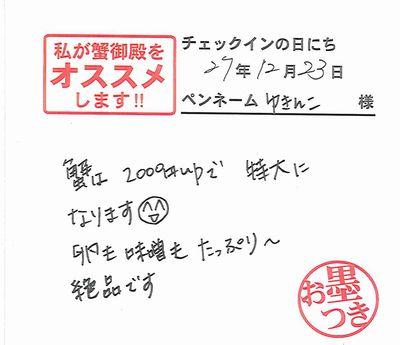 私が蟹御殿を
オススメ
します!!
チェックインの日にち
27年12月23日
ペンネーム ゆきんこ 様
蟹は 2000円upで 特大に
なります
卵も 味噌も たっぷり〜
絶品です
お墨つき